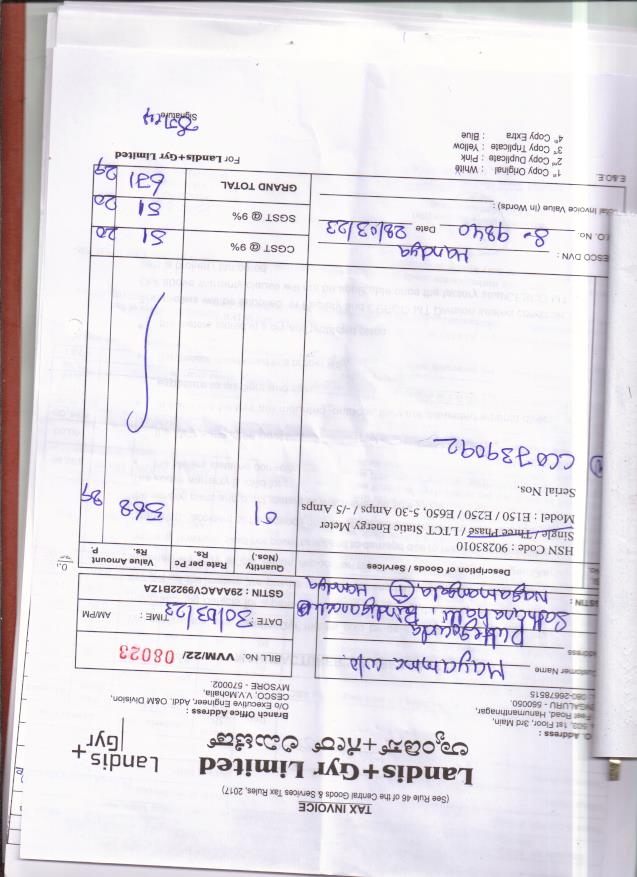 TAX INVOICE
(See Rule 46 of the Central Goods & Services Tax Rules, 2017)
Landis+Gyr Limited
ಲ್ಯಾಂಡಿಸ್+ಗೀರ್ ಲಿಮಿಟೆಡ್
Landis+
Gyr
Address :
503, 1st Floor, 3rd Main,
Feet Road, Hanumanthnagar,
NGALURU - 560050.
080-26678515
Branch Office Address :
O/o Executive Engineer, Addl. O&M Division,
CESCO, V.V.Mohalla,
MYSORE - 570002.
Customer Name Mayamma w/o.
Address Puttegowda
Nagamangala, (T) Mandya
BILL No. VVM/22/ 08023
DATE : 30/03/23 TIME : AM/PM
GSTIN : 29AAACV9922B1ZA
Description of Goods / Services
Quantity (Nos.)
Rate per Pc Rs.
Value Amount Rs. P.
HSN Code : 90283010
Single / Three Phase / LTCT Static Energy Meter
Model : E150 / E250 / E650, 5-30 Amps / -/5 Amps
01 568 89
Serial Nos.
1 CC0739092
ESCO DVN : Mandya
O. No. 8-9840 Date 28/03/23
CGST @ 9% 51 20
SGST @ 9% 51 20
GRAND TOTAL 631 29
Invoice Value (in Words) :
E.&O.E.
For Landis+Gyr Limited
1st Copy Original : White
2nd Copy Duplicate : Pink
3rd Copy Triplicate : Yellow
4th Copy Extra : Blue
Signature